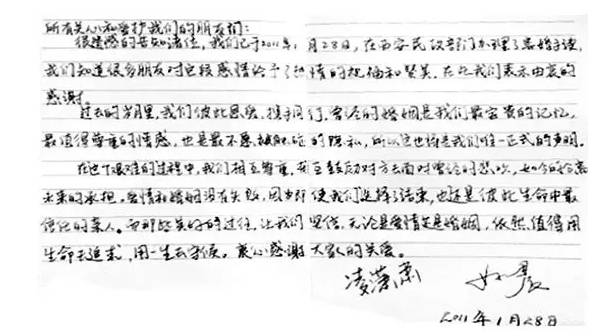 所有关心和爱护我们的朋友们:
很遗憾的告知诸位,我们已于2011年1月28日,在西安民政部门办理了离婚手续,
我们知道很多朋友对这段感情给予了热情的祝福和赞美,在此我们表示由衷的
感谢。
过去的岁月里,我们彼此恩爱,携手同行,曾经的婚姻是我们最宝贵的记忆,
最值得尊重的情感,也是最不愿被触碰的隐私,所以这也将是我们唯一正式的声明。
在这个艰难的过程中,我们相互尊重,相互鼓励对方去面对曾经的悲欢,如今的分离
未来的承担。爱情和婚姻没有失败,因为即使我们选择了结束,也还是彼此生命中最
信任的亲人。而那些美好的过往,让我们坚信,无论是爱情还是婚姻,依然值得用
生命去追求,用一生去守候。衷心感谢大家的关爱。
凌潇肃 姚晨
2011年1月28日